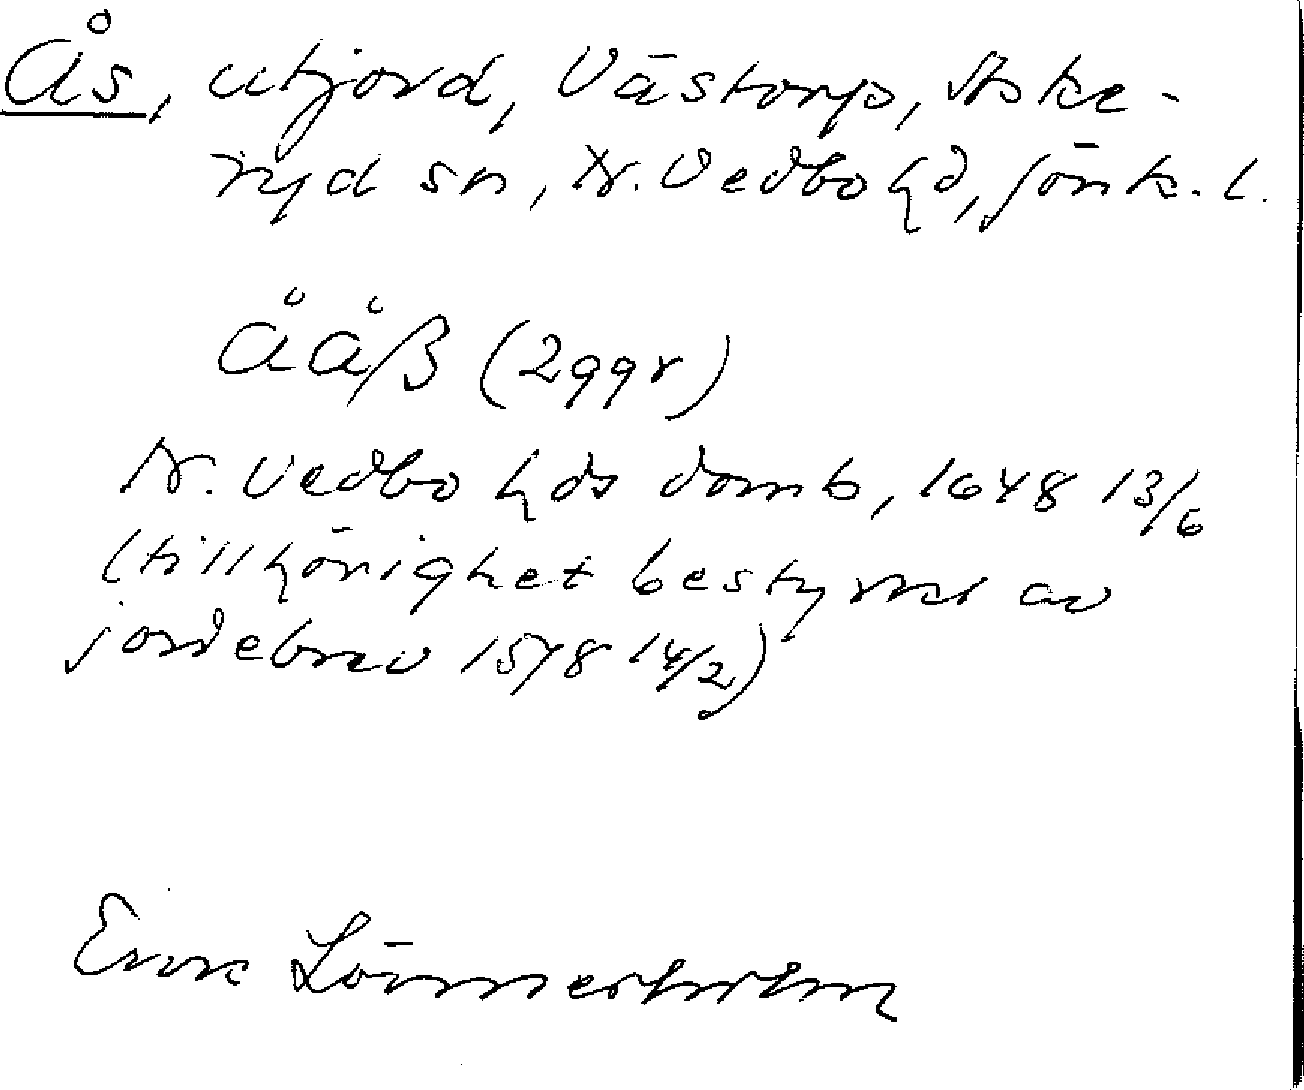 Ås, utjord, Västorp, Aske-
ryd sn, N. Vedbo hd, Jönk. l.
Ååß (2 ggr)
N. Vedbo hds domb, 1648 13/6
(tillhörighet bestyrkt av
jordebrev 1578 14/2)
Erik Lönnerholm